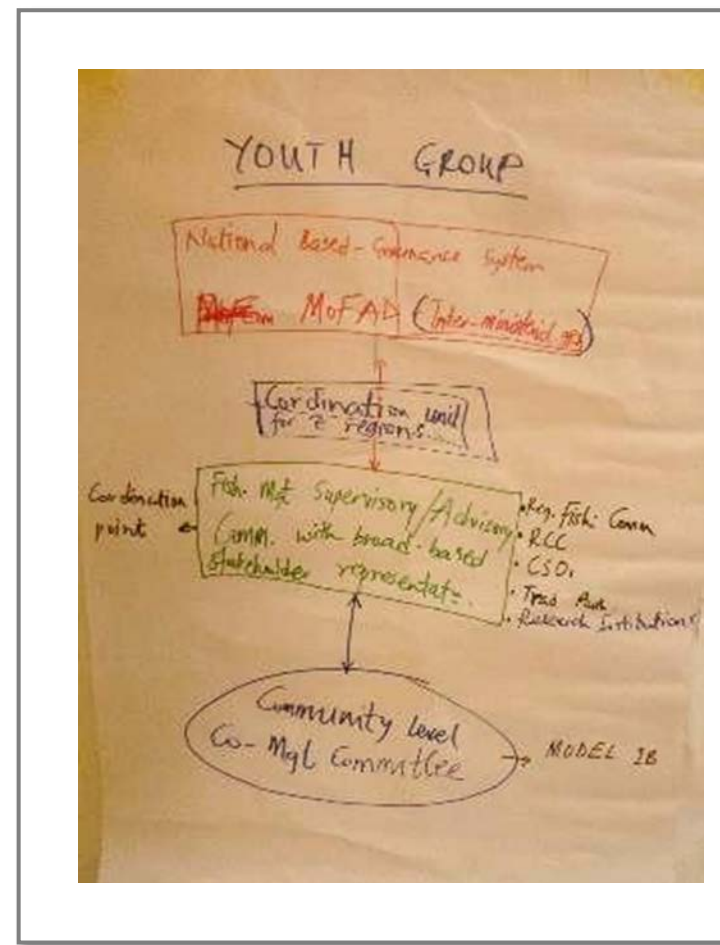 YOUTH GROUP
National Based-Governance System
MoFAD (Inter-ministerial
Cordination unit
for 2 regions...
Fish. Mgt Supervisory/Advisory
Comm. with broad-based
stakeholder representatn.
Cordination
point
• Reg. Fish. Comm
• RCC
• CSOs
• Trad Auth
• Research Institutions
Community Level
Co-Mgt Committee
MODEL 1B